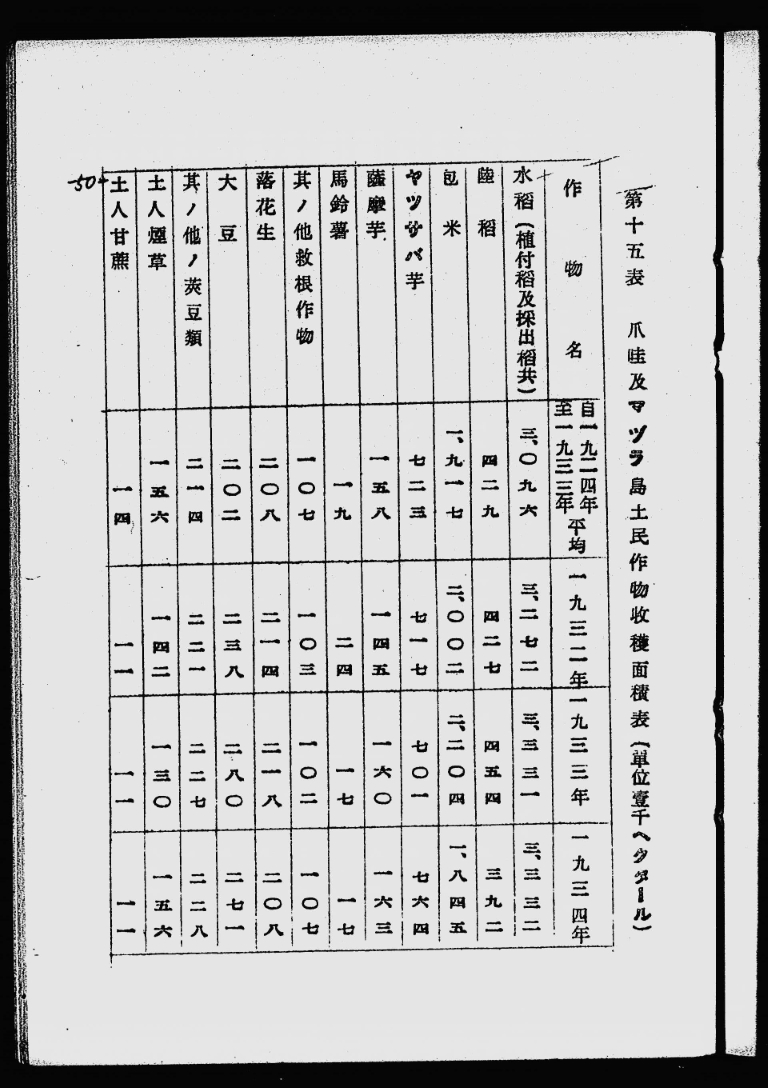 第十五表　爪哇及マヅラ島土民作物收穫面積表(單位壹千ヘクタール)
作物名　自一九二四年至一九三三年平均　一九三二年　一九三三年　一九三四年
水稻(植付稻及採出稻共)　三、〇九六　三、二七二　三、三三一　三、三三二
陸稻　四二九　四二七　四五四　三九二
包米　一、九一七　二、〇〇二　二、二〇四　一、八四五
ヤツサバ芋　七二三　七一七　七〇一　七六四
薩摩芋　一五八　一四五　一六〇　一六三
馬鈴薯　一九　二四　一七　一七
其ノ他救根作物　一〇七　一〇三　一〇二　一〇七
落花生　二〇八　二一四　二一八　二〇八
大豆　二〇二　二三八　二八〇　二七一
其ノ他ノ莢豆類　二一四　二二一　二二七　二二八
土人煙草　一五六　一四二　一三〇　一五六
土人甘蔗　一四　一一　一一　一一
50